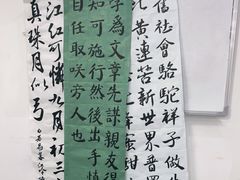 社會駱駝祥子做
黄連苦新世界普
蜜甜
字為文章先謀親友得
知可施行然後出手慎
自任取咲旁人也
江紅可憐九月初三
真珠月似弓